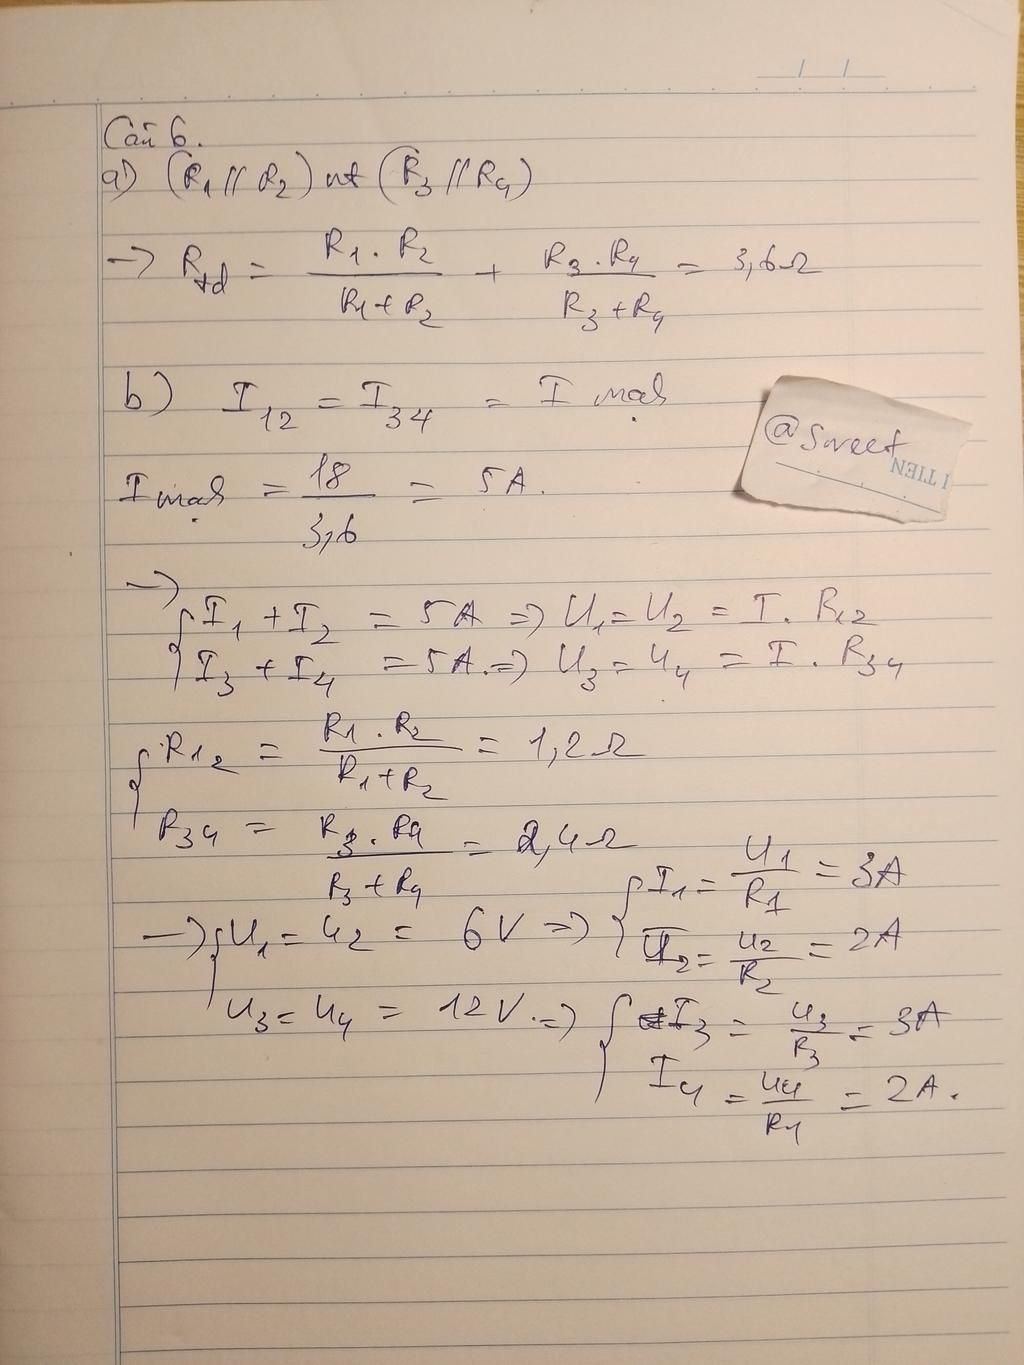 Câu 6.
a) (R1 // R2) nt (R3 // R4)
→ Rtđ = R1 . R2 / R1 + R2 + R3 . R4 / R3 + R4 = 3,6Ω
b) I12 = I34 = I mạch
I mạch = 18 / 3,6 = 5A.
→
{ I1 + I2 = 5A => U1 = U2 = I . R12
I3 + I4 = 5A. => U3 = U4 = I . R34
{ R12 = R1 . R2 / R1 + R2 = 1,2Ω
R34 = R3 . R4 / R3 + R4 = 2,4Ω
→ { U1 = U2 = 6V => { I1 = U1 / R1 = 3A
I2 = U2 / R2 = 2A
U3 = U4 = 12V. => { I3 = U3 / R3 = 3A
I4 = U4 / R4 = 2A.
@Sweet
I TIEN